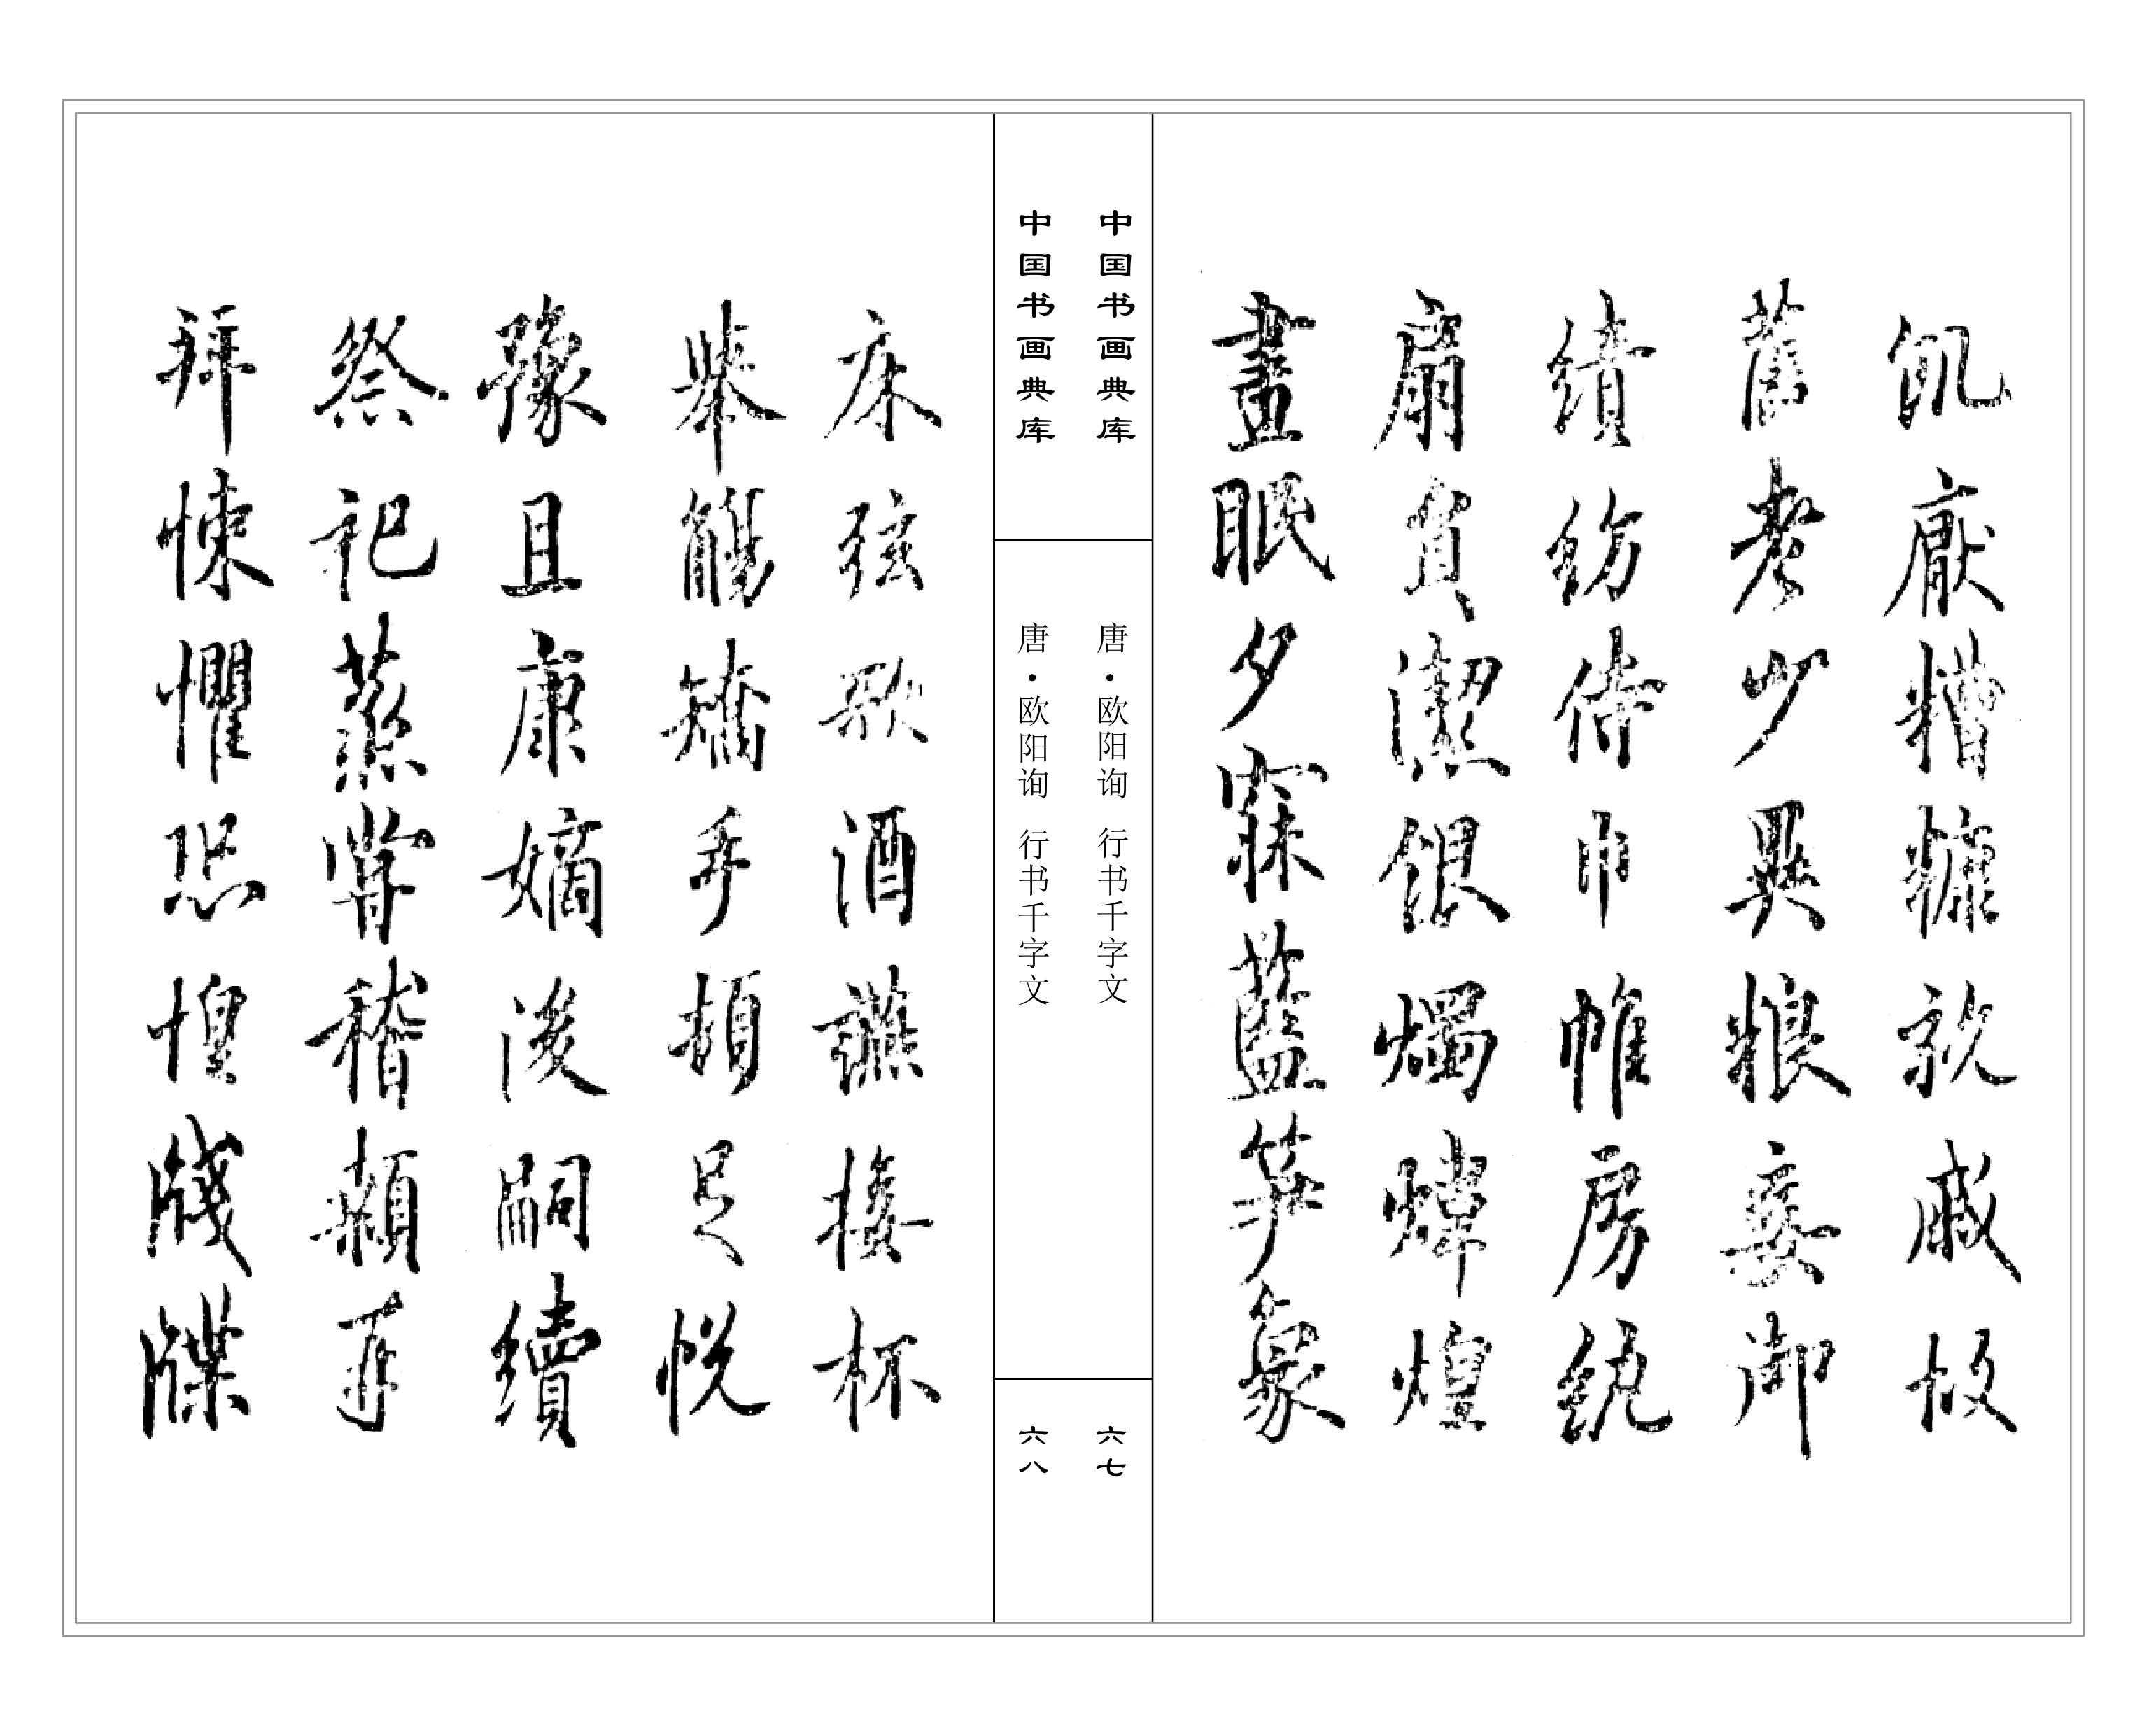 飢厭糟糠親戚故
舊老少異粮妾御
績紡侍巾帷房紈
扇員潔銀燭煒煌
晝眠夕寐藍笋象
中国书画典库
唐·欧阳询 行书千字文
六七
中国书画典库
唐·欧阳询 行书千字文
六八
床弦歌酒讌接杯
舉觴矯手頓足悅
豫且康嫡後嗣續
祭祀蒸嘗稽顙再
拜悚懼恐惶牋牒